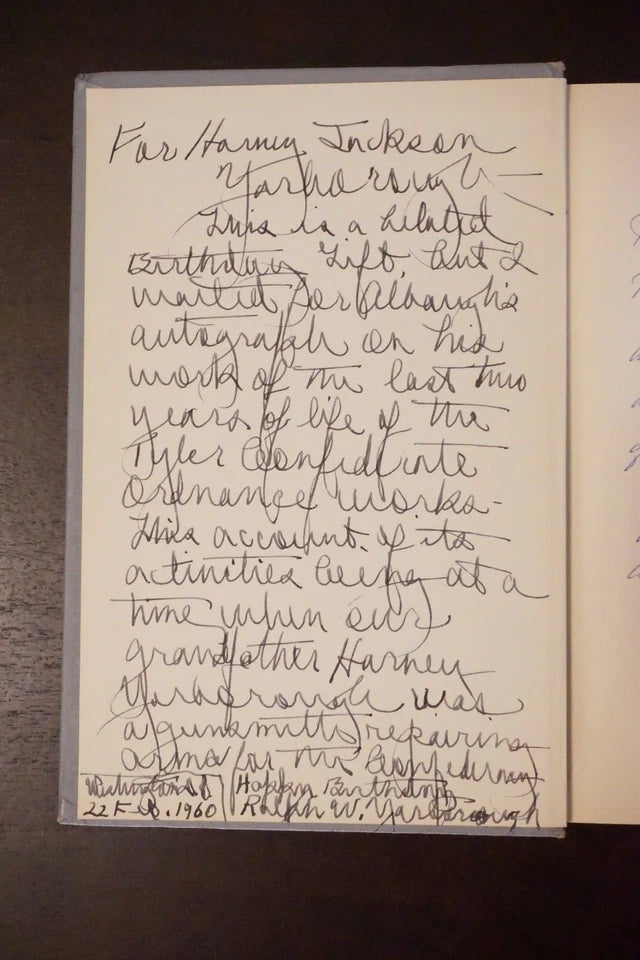 For Harvey Jackson
Yarborough—
This is a belated
Birthday Gift, but I
waited for Albaugh's
autograph on his
work of the last two
years of life of the
Tyler Confederate
Ordnance works-
This account of its
activities being at a
time when our
grandfather Harvey
Yarborough was
a gunsmith repairing
arms for the Confederacy
Washington, D.C. Happy Birthday
22 Feb. 1960 Ralph W. Yarborough